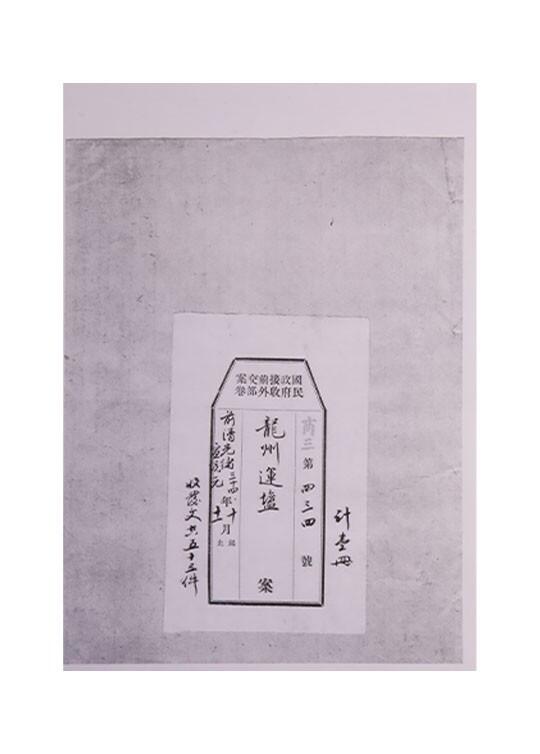 國民政府接收前外交部案卷
計壹冊
商三第四三四號
龍州運鹽案
前清光緒三十四年十月起
宣統元十一止
收發文共五十三件